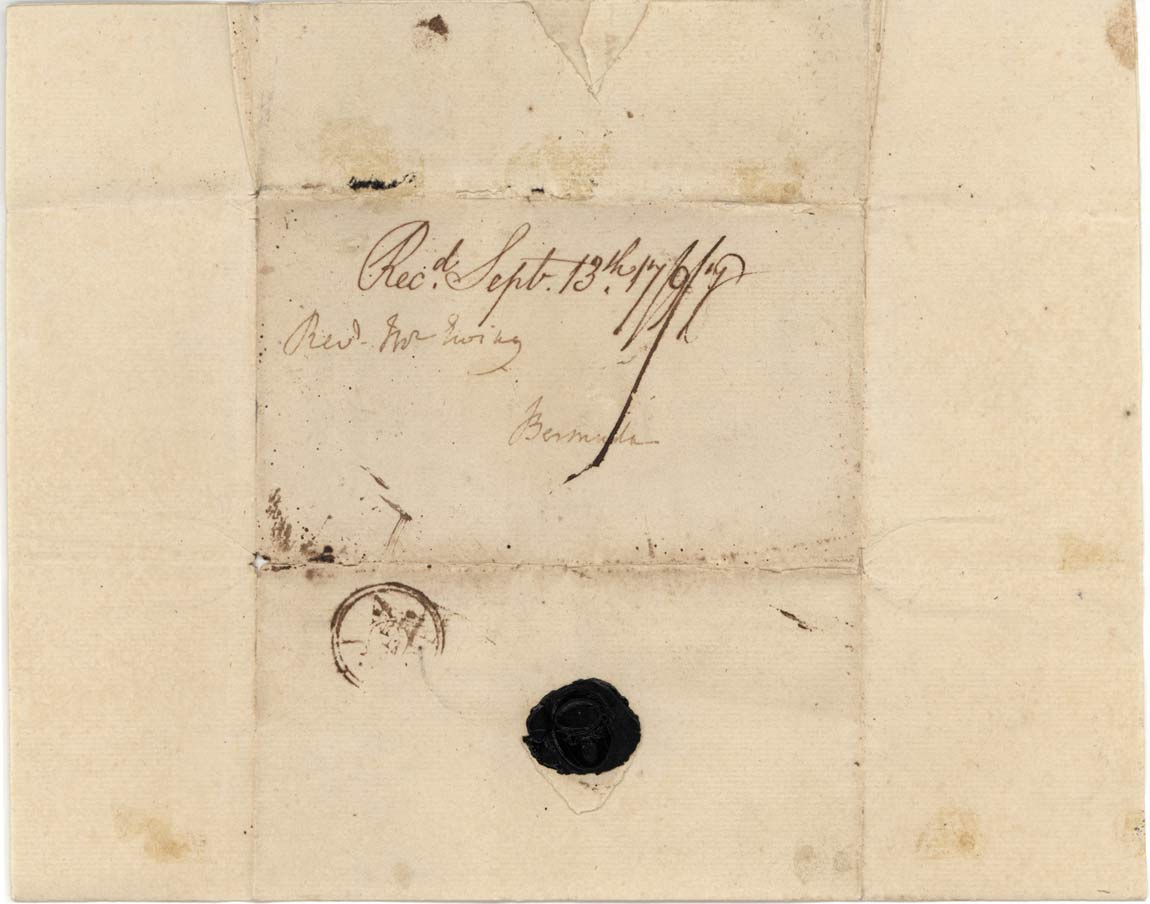 Rec.d Sept. 13th.
Revd. Mr Ewing
Bermuda